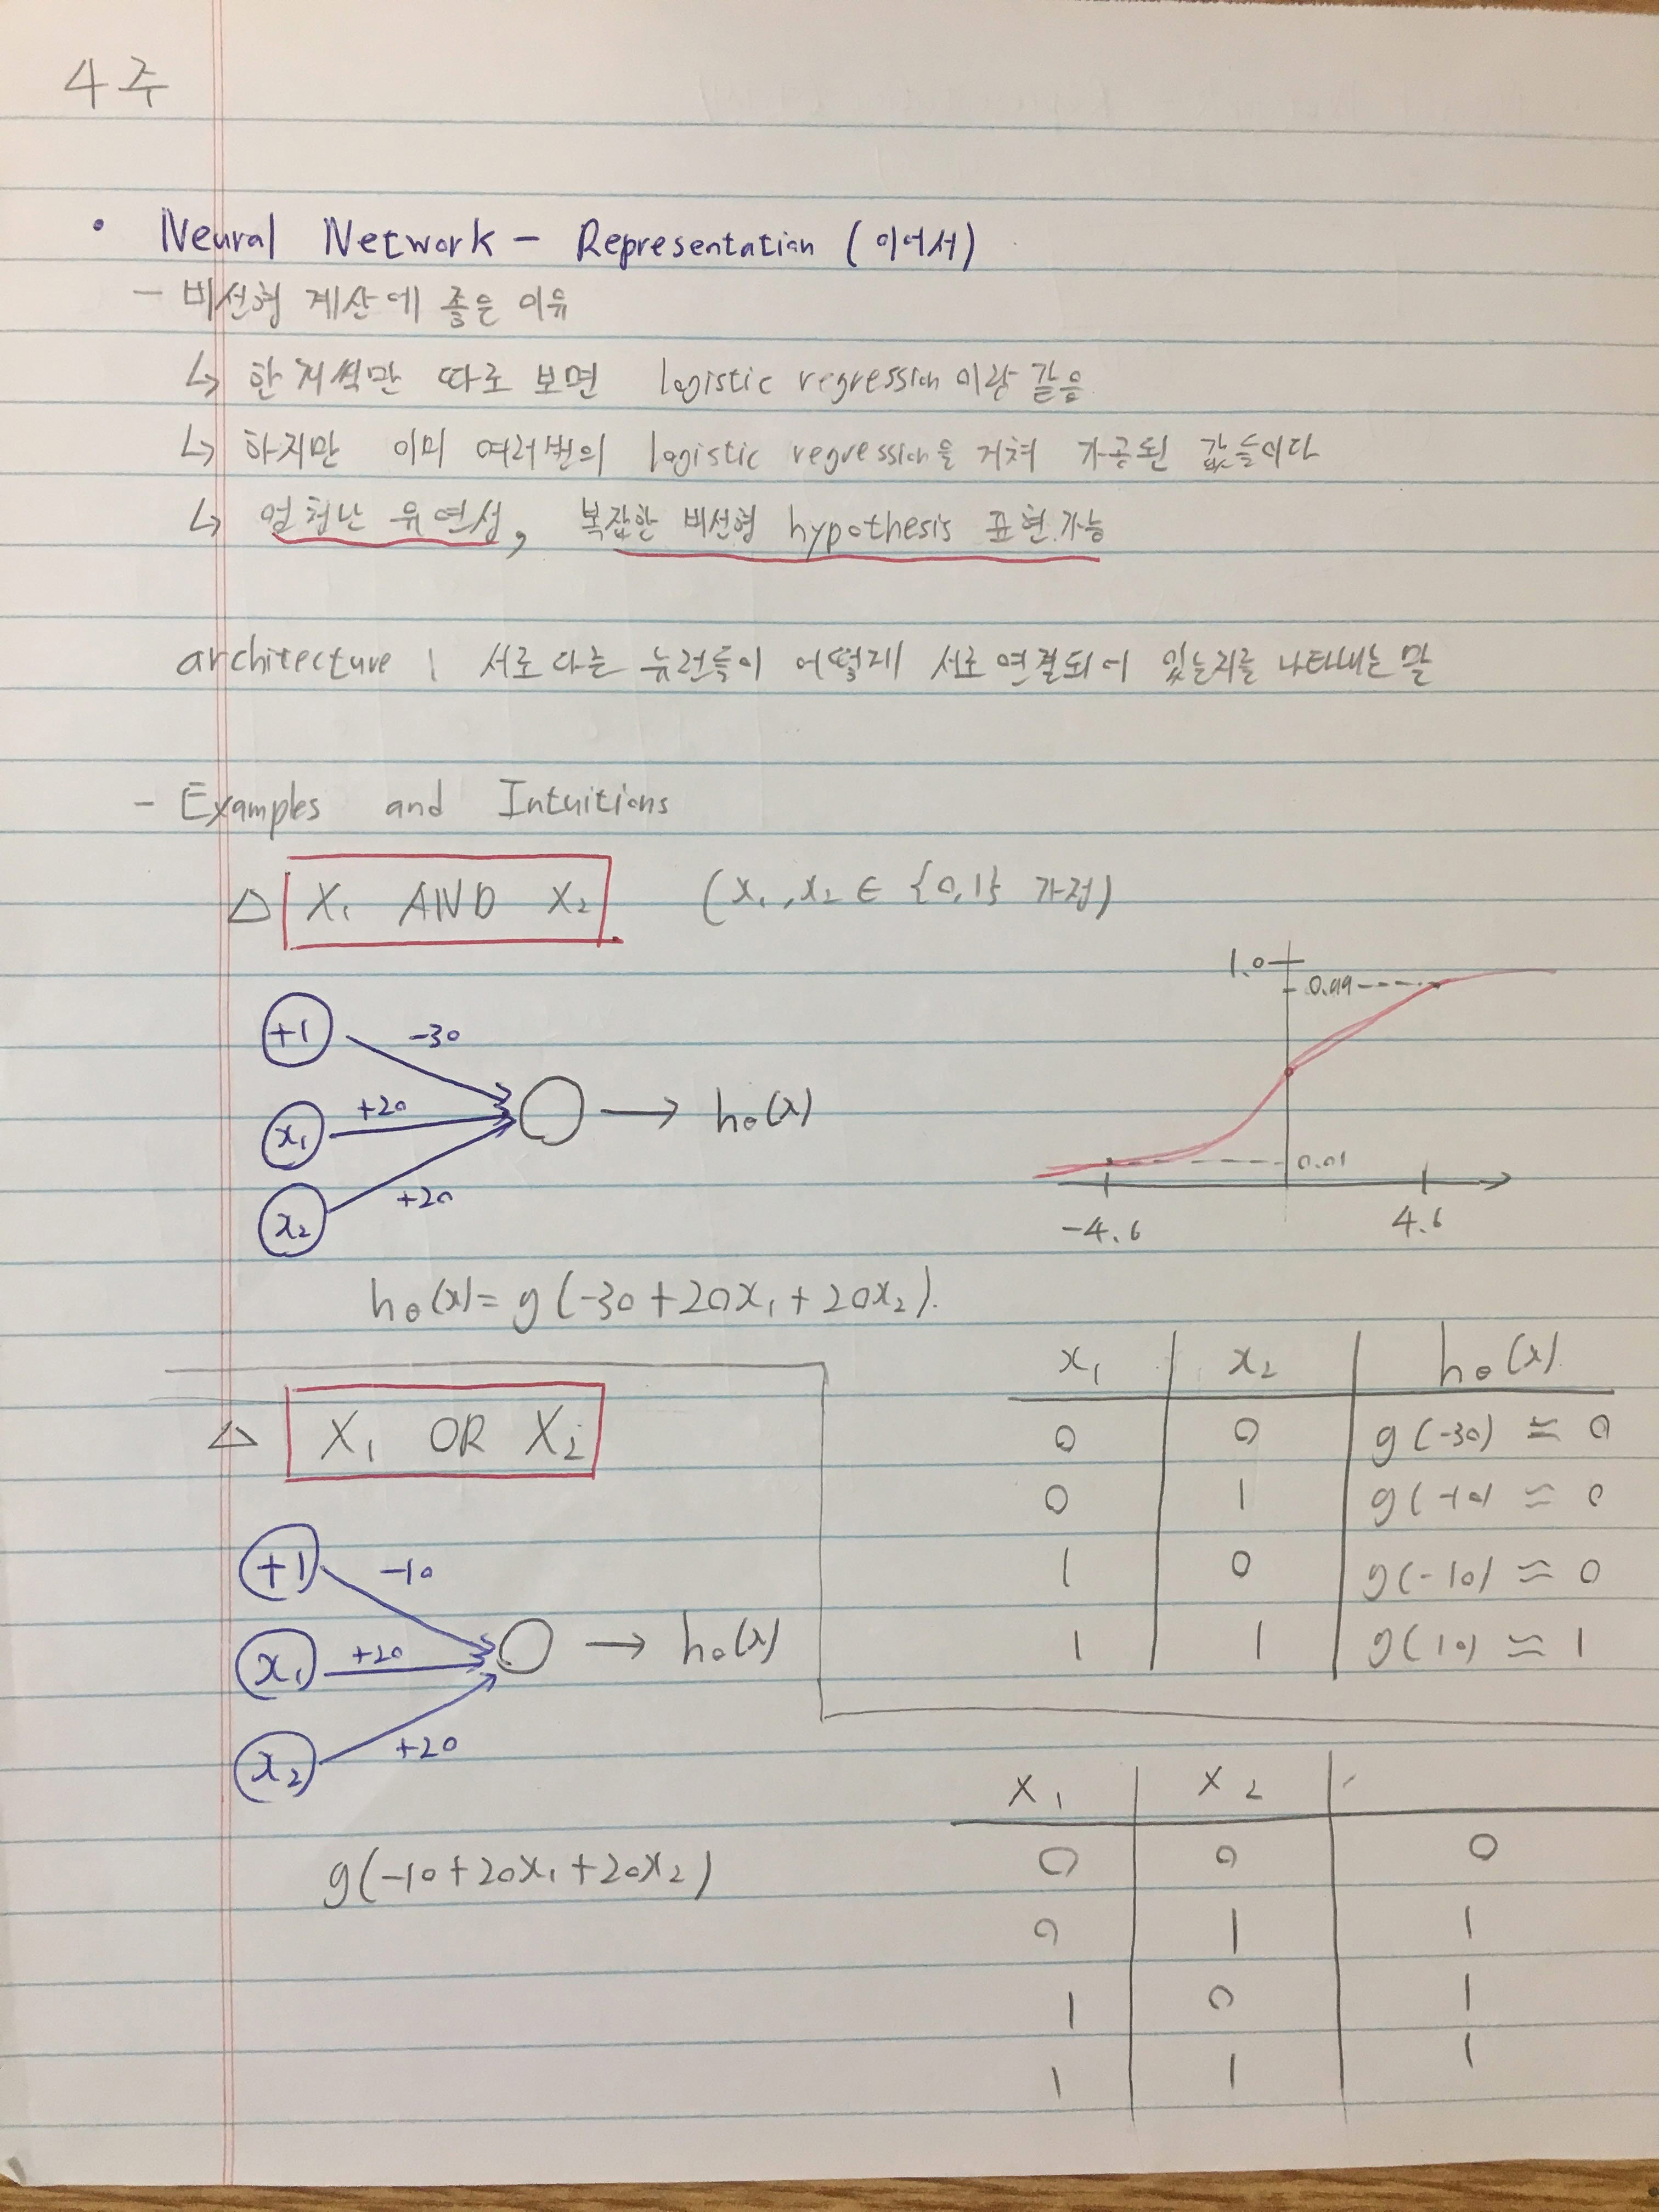 4주
• Neural Network - Representation (이어서)
- 비선형 계산에 좋은 이유
↳ 한 지씩만 따로 보면 logistic regression이랑 같음
↳ 하지만 이미 여러번의 logistic regression을 거쳐 가공된 값들이다
↳ 엄청난 유연성, 복잡한 비선형 hypothesis 표현 가능
architecture : 서로 다른 뉴런들이 어떻게 서로 연결되어 있는지를 나타내는 말
- Examples and Intuitions
△ X₁ AND X₂ (x₁, x₂ ∈ {0,1} 가정)
+1 -30
x₁ +20 → hθ(x)
x₂ +20
1.0
0.99
0.01
-4.6 4.6
hθ(x) = g(-30+20x₁+20x₂).
x₁ x₂ hθ(x)
0 0 g(-30) ≈ 0
0 1 g(-10) ≈ 0
1 0 g(-10) ≈ 0
1 1 g(10) ≈ 1
△ X₁ OR X₂
+1 -10
x₁ +20 → hθ(x)
x₂ +20
g(-10+20x₁+20x₂)
x₁ x₂
0 0 0
0 1 1
1 0 1
1 1 1